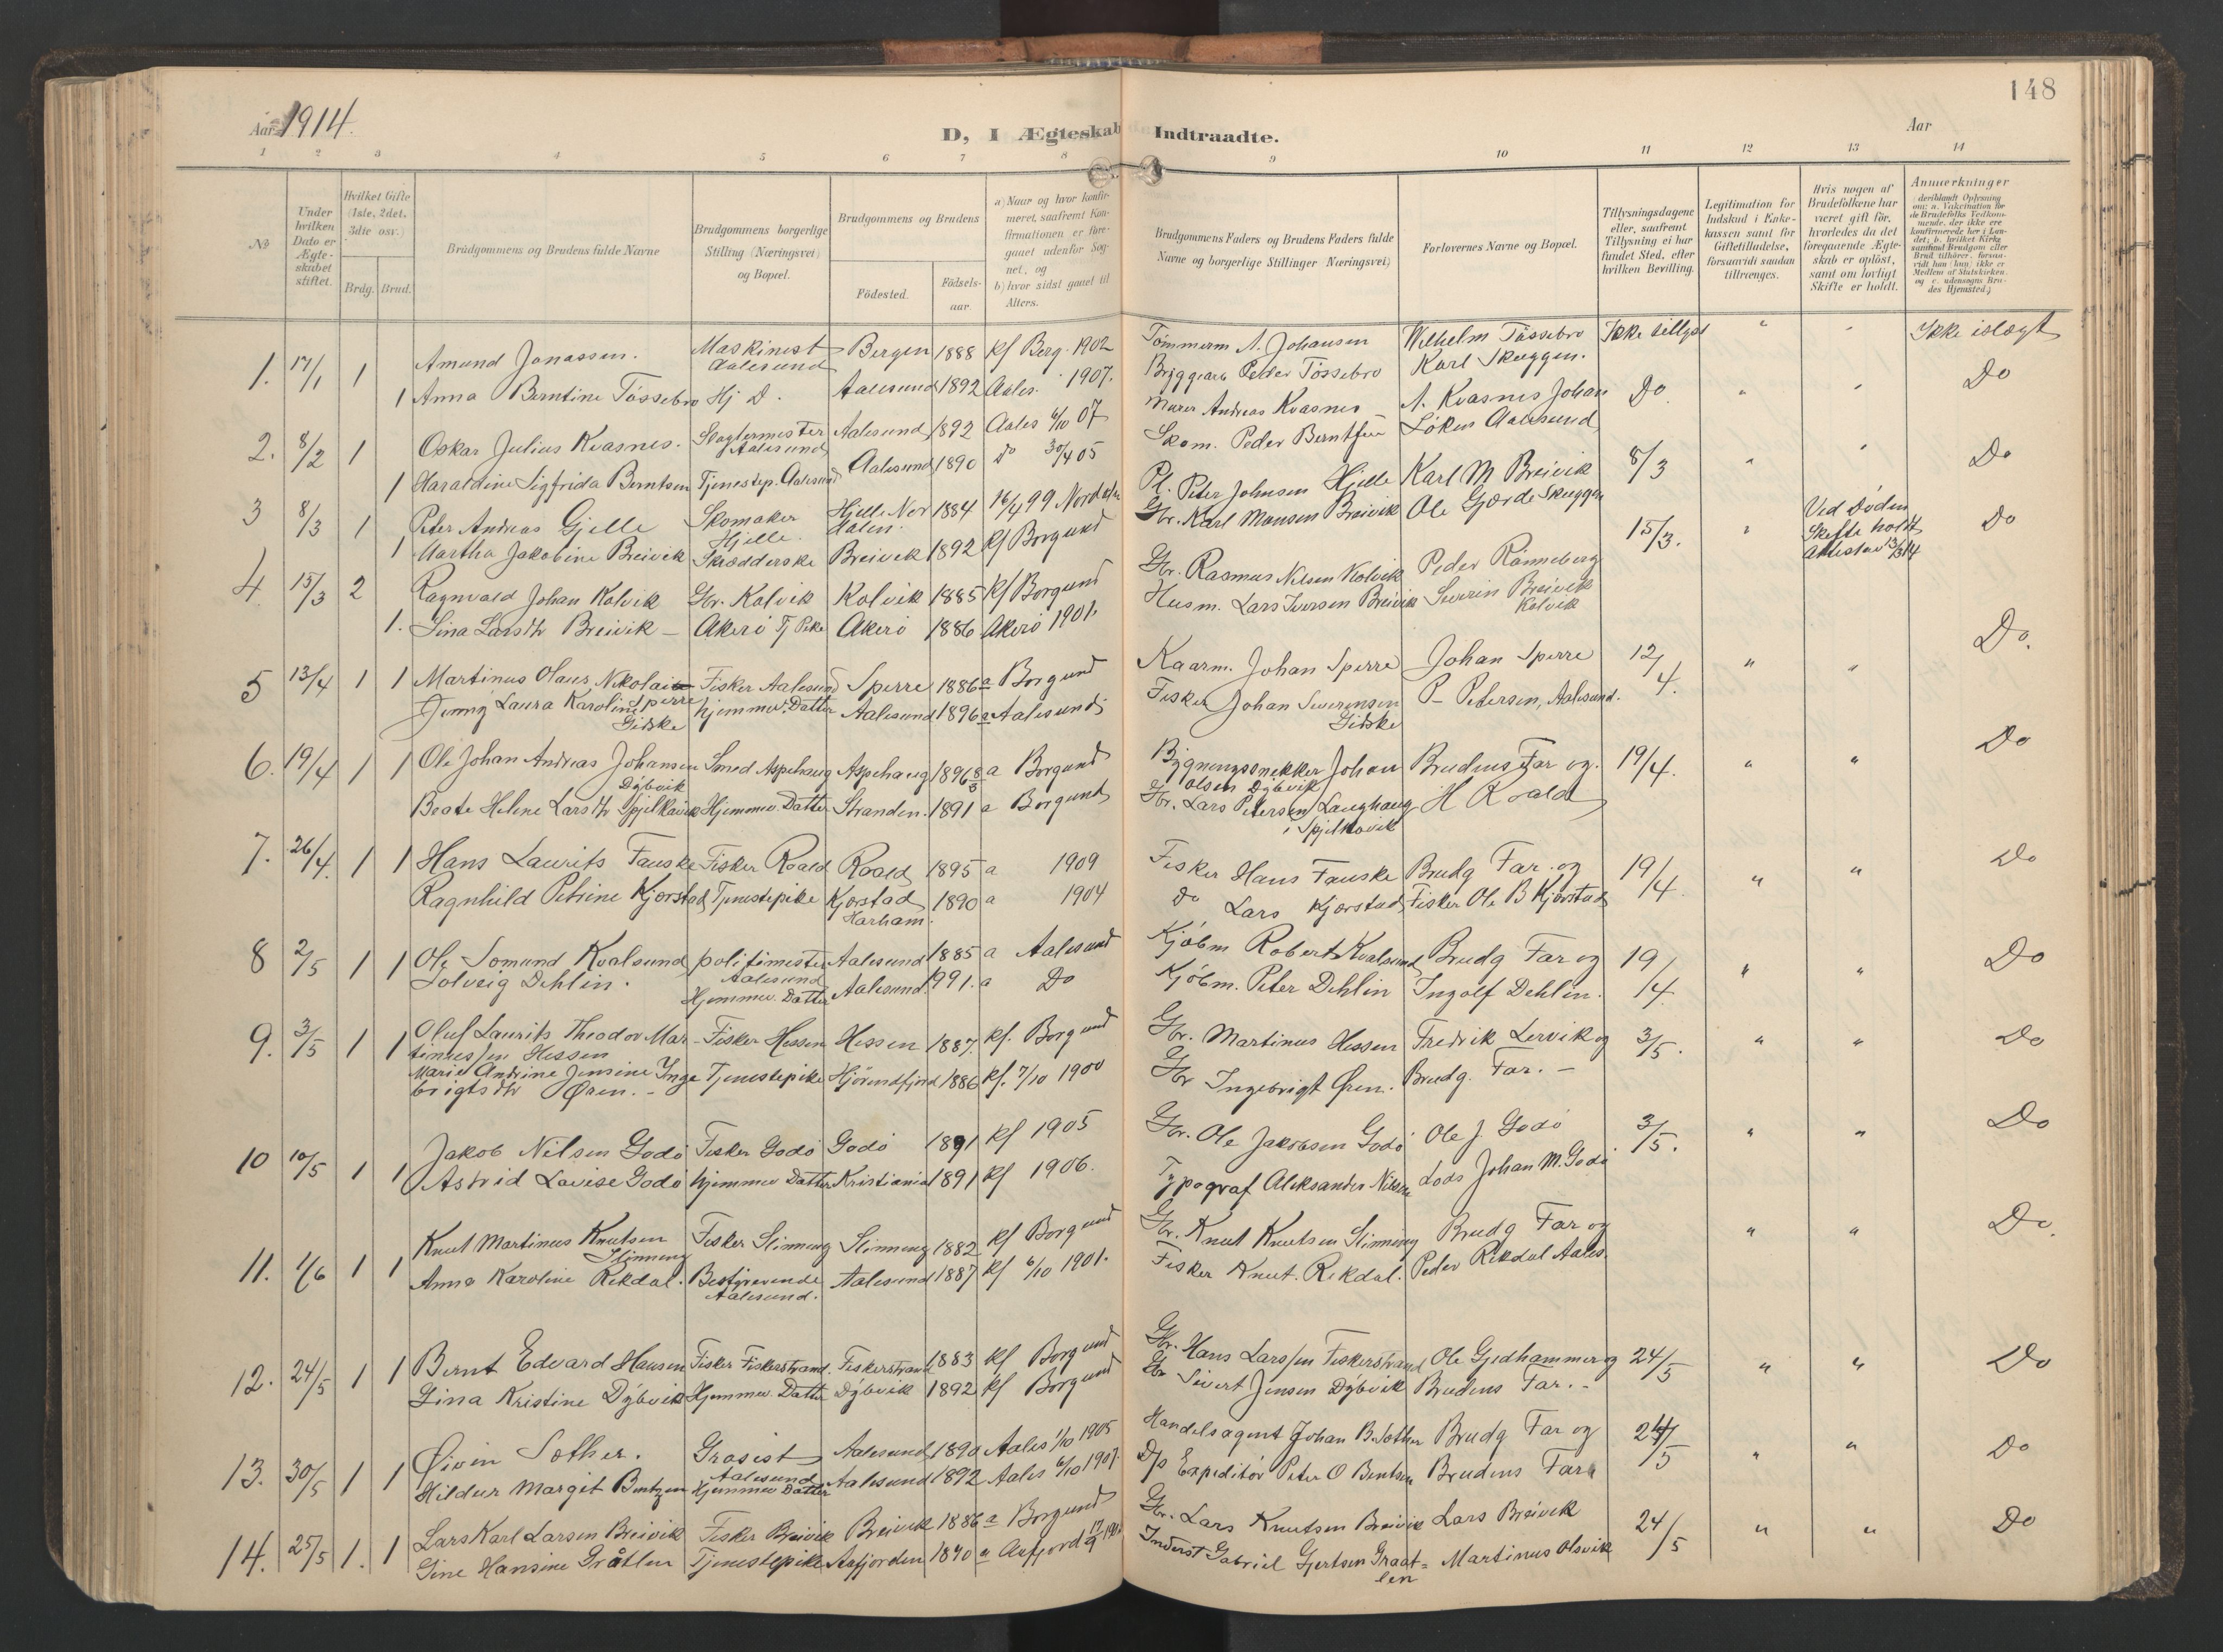 148
Aar 1914.
D, I Ægteskab Indtraadte.
Aar
1 2 3 4 5 6 7 8 9 10 11 12 13 14
No
Under hvilken Dato er Ægteskabet stiftet.
Hvilket Gifte (1ste, 2det, 3die osv.)
Brdg. Brud.
Brudgommens og Brudens fulde Navne
Brudgommens borgerlige Stilling (Næringsvei) og Bopæl.
Brudgommens og Brudens
Fødested.
Fødselsaar
a) Naar og hvor konfirmeret, saafremt Konfirmationen er foregaaet udenfor Sognet, og
b) hvor sidst gaaet til Alters.
Brudgommens Faders og Brudens Faders fulde Navne og borgerlige Stillinger (Næringsvei)
Forlovernes Navne og Bopæl.
Tillysningsdagene eller, saafremt Tillysning ei har fundet Sted, efter hvilken Bevilling.
Legitimation for Indskud i Enkekassen samt for Giftetilladelse, forsaavidt saadan tiltrænges.
Hvis nogen af Brudefolkene har været gift før, hvorledes da det foregaaende Ægteskab er opløst, samt om lovligt Skifte er holdt.
Anmerkninger (deriblandt Oplysning om: a. Vakcination for de Brudefolks Vedkommende, der ikke ere konfirmerede her i Landet; b. hvilket Kirkesamfund Brudgom eller Brud tilhører, forsaavidt han (hun) ikke er Medlem af Statskirken, og c. udensogns Brudes Hjemsted.)
1. 17/1 1 Amund Jonassen. Maskinist Aalesund Bergen 1888 Kf Berg. 1902 Tømmerm A. Johansen Wilhelm Tøssebro Ikke tillyst " " Ikke islægt
1 Anna Berntine Tøssebro Hj D. Aalesund 1892 Aales. 1907. Bryggearb Peder Tøssebro Karl Skuggen.
2. 8/2 1 Oskar Julius Kvasnes. Slagtermester Aalesund Aalesund 1892 Aales 6/10 07 Murer Andreas Kvasnes A. Kvasnes Johan Do " " Do
1 Haraldine Sigfrida Berntsen Tjenestep. Aalesund Aalesund 1890 Do 30/4 05 Skom. Peder Berntsen Løken Aalesund
3 8/3 1 Peter Andreas Gjelle Skomaker Hjelle. Hjelle Nordalen. 1884 16/4 99 Pl. Peter Johnsen Hjelle Karl M Breivik 8/3 " " Do
1 Martha Jakobine Breivik Skrædderske Breivik 1892 Kf Borgund Gbr. Karl Monsen Breivik Ole Gjærde Skuggen
4. 15/3 2 Ragnvald Johan Kolvik Gbr. Kolvik Kolvik 1885 Kf Borgund Gbr. Rasmus Nilsen Kolvik Peder Rønneberg 15/3. " Ved Døden Skifte holdt Attest av 13/3 14 Do
1. Sina Larsdtr Breivik - Akerø Tj Pike Akerø 1886 Akerø 1901. Husm. Lars Iversen Breivik Severin Breivik Kolvik
5 13/4 1 1 Martinus Olaus Nikolai Sperre Fisker Aalesund Sperre 1886 a Borgund Kaarm. Johan Sperre Johan Sperre 12/4. " " Do.
Jenny Laura Karoline Giske hjemmev. Datter Aalesund 1896 a Aalesund Fisker Johan Severinsen Giske P. Petersen, Aalesund.
6. 19/4 1 1 Ole Johan Andreas Johansen Dybvik Smed Aspehaug Aspehaug 1896 a Borgund Bygningssnekker Johan Olsen Dybvik Brudens Far og 19/4. " " Do
Beate Helene Larsdtr Spjelkavik Hjemmev. Datter Stranden. 1891 a Borgund Gbr. Lars Petersen Langhaug i Spjelkavik H Roald
7. 26/4. 1 1 Hans Laurits Fauske Fisker Roald Roald 1895 a 1909 Fisker Hans Fauske Brudg Far og 19/4. " " Do
Ragnhild Petrine Kjørstad Tjenestepike Kjørstad Harham. 1890 a 1904 Do Lars Kjørstad Fisker Ole B Kjørstad
8 2/5 1 1 Ole Somund Kvalsund politimester Aalesund Aalesund 1885 a Aalesund Kjøbm Robert Kvalsund Brudg Far og 19/4. " " Do
Solveig Dehlin. Hjemmev. Datter Aalesund. 1991. a Do Kjøbm. Peter Dehlin Ingolf Dehlin.
9. 3/5 1 1 Oluf Laurits Theodor Martinussen Hessen Fisker Hessen Hessen 1887. Kf. Borgund Gbr. Martinus Hessen Fredrik Lervik og 3/5. " " Do
Marie Andrine Jensine Ingebrigtsdtr Øren. - Tjenestepike Hjørundfjord 1886 Kf. 7/10 1900 Gbr Ingebrigt Øren. Brudg. Far. -
10 10/5 1 1 Jakob Nilsen Godø Fisker Godø Godø 1891 Kf 1905 Gbr. Ole Jakobsen Godø Ole J. Godø 3/5. " " Do
Astrid Lovise Godø hjemmev Datter Kristiania 1891 Kf 1906. Typograf Aleksander Nilsen Lods Johan M. Godø
11. 1/6 1 1 Knut Martinus Knutsen Slinning Fisker Slinning Slinning 1882 Kf Borgund Gbr. Knut Knutsen Slinning Brudg Far og " " Do.
Anna Karoline Rekdal. Bestyrerinde Aalesund. Aalesund 1887 Kf 6/10 1901. Fisker Knut. Rekdal. Peder Rekdal Aales.
12. 24/5 1 1 Bernt Edvard Hansen Fisker Fiskerstrand. Fiskerstrand 1883 Kf Borgund Gbr. Hans Larssen Fiskerstrand Ole Gjedhammer og 24/5 " " Do
Gina Kristine Dybvik Hjemmev. Datter Dybvik 1892 Kf Borgund Gbr Sivert Jensen Dybvik Brudens Far. -
13. 30/5 1 1 Øivin Sother. Grosist Aalesund Aalesund 1890 Aales 1/10 1905 Handelsagent Johan B. Sother Brudg Far og 24/5 " " Do
Hildur Margit Bentzen Hjemmev Datter Aalesund 1892 Aales 6/10 1907. D/s Expeditør Peter O Bentsen Brudens Far
14. 25/5 1. 1 Lars Karl Larsen Breivik Fisker Breivik Breivik 1886 a Borgund Gbr. Lars Knutsen Breivik Lars Breivik 24/5 " " Do
Gine Hansine Gråtlen Tjenestepike Aafjorden 1890 a Aafjord Inderst Gabriel Gjertsen Graatlen Martinus Olsvik